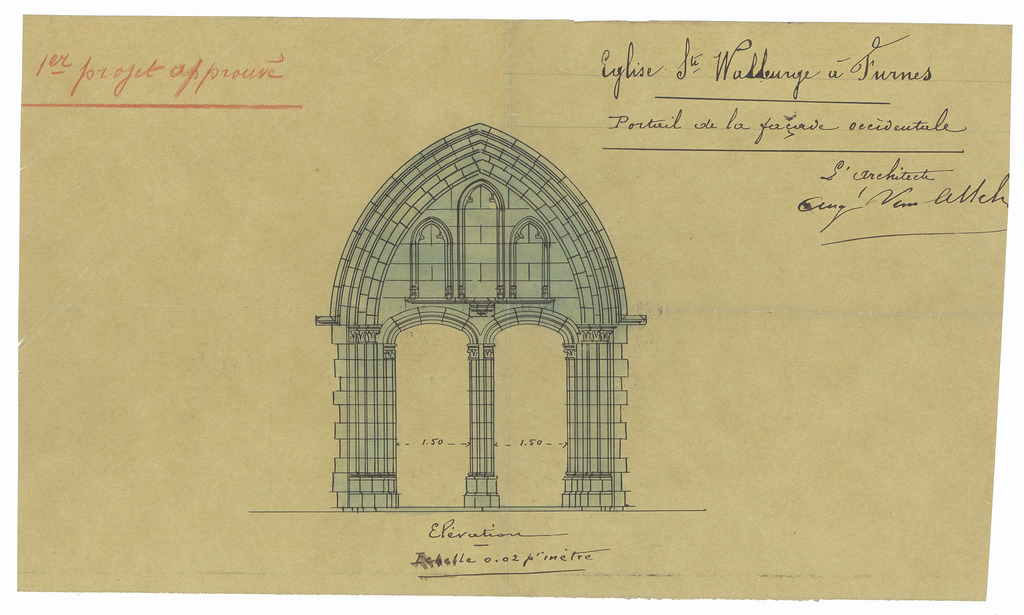 1er projet approuvé
Eglise Ste Walburge à Furnes
Portail de la façade occidentale
L'architecte
Augt Van Assche
1.50 1.50
Elévation
Echelle 0.02 pr mètre